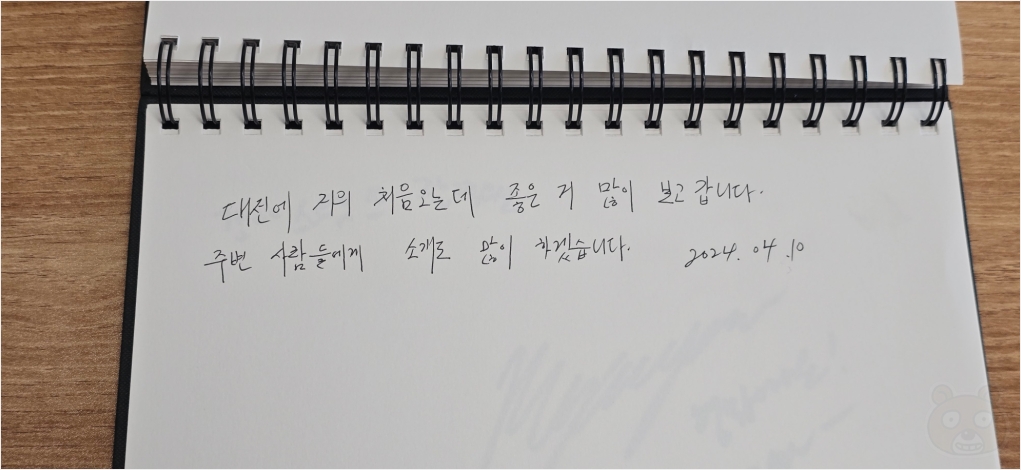 대전에 거의 처음오는데 좋은 거 많이 보고 갑니다.
주변 사람들에게 소개도 많이 하겠습니다. 2024. 04. 10